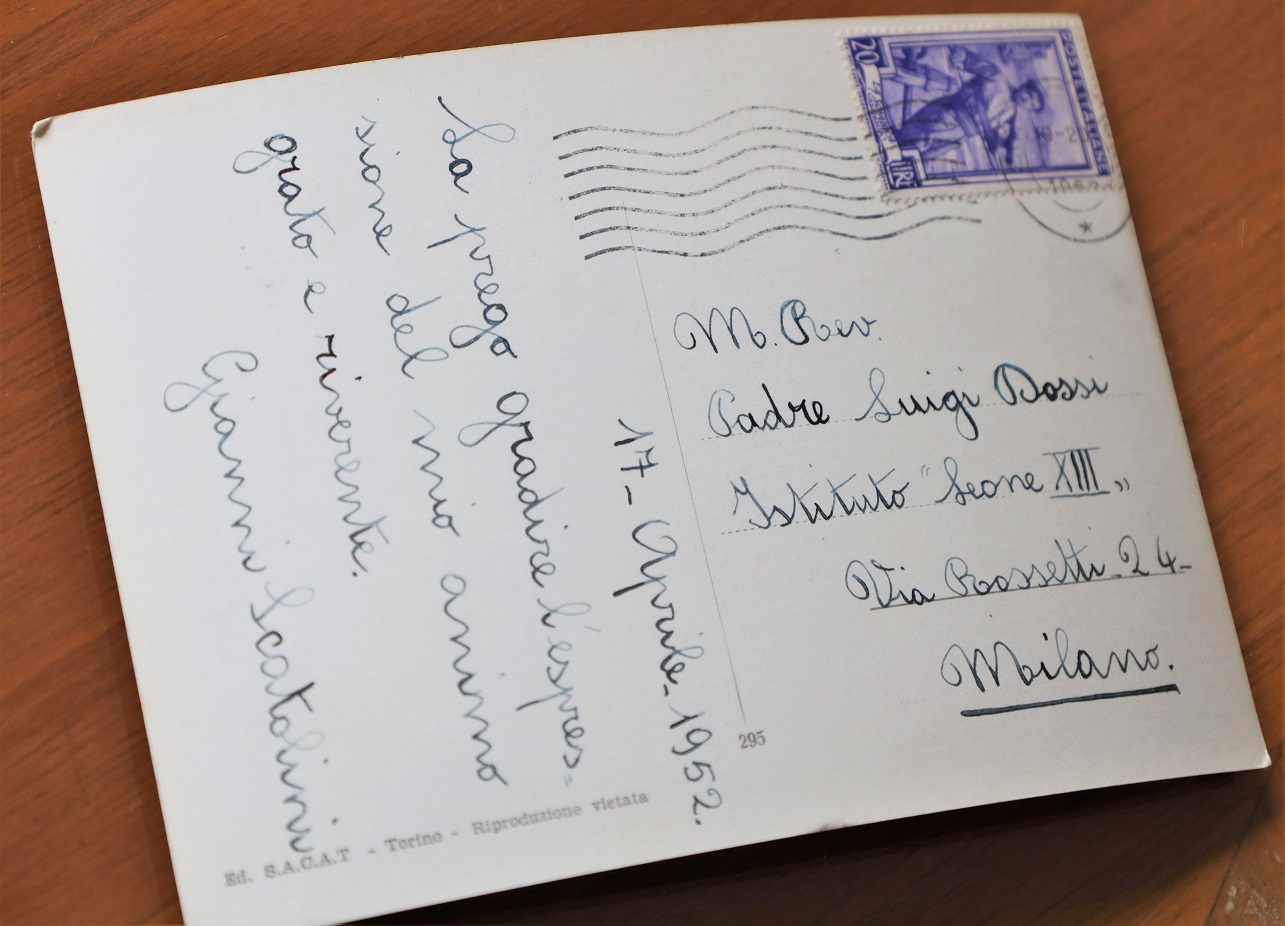 17 - Aprile - 1952.
La prego gradire l'espres=
sione del mio animo
grato e riverente.
Gianni Scatolini
20
LIRE
POSTE ITALIANE
M. Rev.
Padre Luigi Dossi
Istituto "Leone XIII"
Via Rossetti - 24 -
Milano.
295
Ed. S.A.C.A.T - Torino - Riproduzione vietata